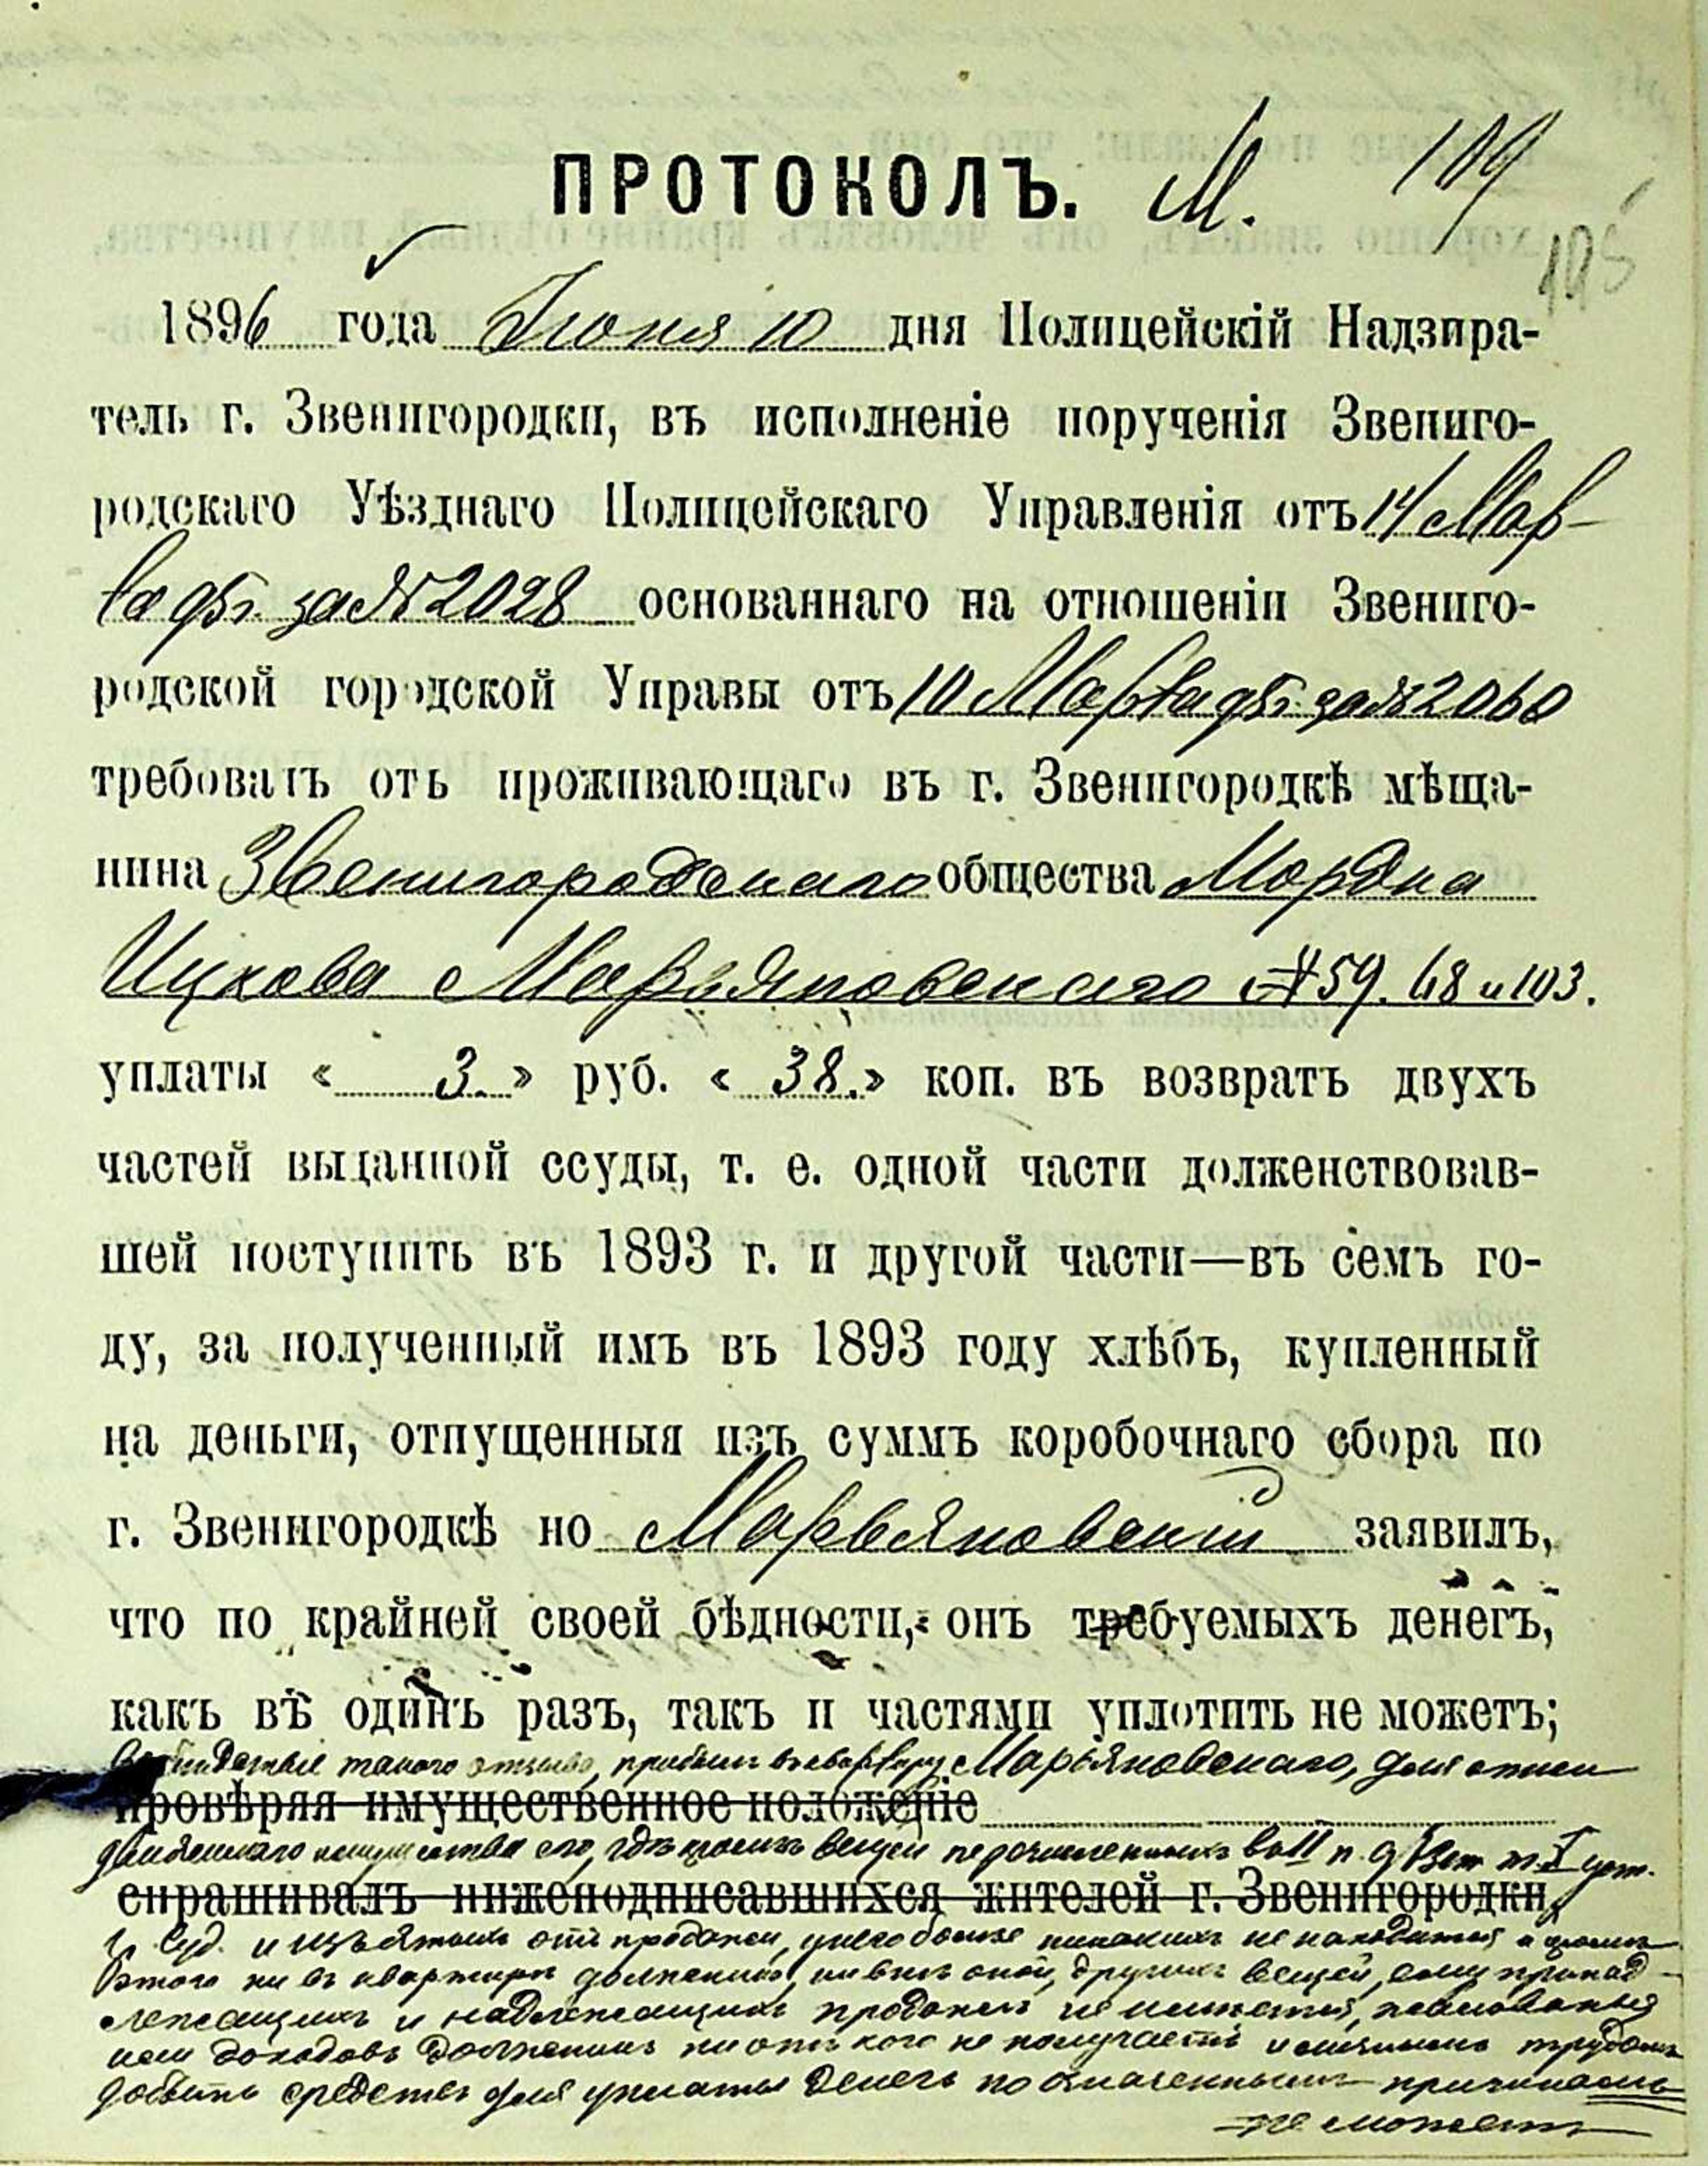 ПРОТОКОЛЪ. М. 109
105
1896 года Іюня 10 дня Полицейскій Надзира-
тель г. Звенигородки, въ исполненіе порученія Звениго-
родскаго Уѣзднаго Полицейскаго Управленія отъ 14 Мар-
та 95 г. за № 2028 основаннаго на отношеніи Звениго-
родской городской Управы отъ 10 Марта 95 г. за № 2060
требовать отъ проживающаго въ г. Звенигородкѣ мѣща-
нина Звенигородскаго общества Мордка
Ицкова Марьяновскаго № 59. 68 и 103.
уплаты « 3. » руб. « 38. » коп. въ возвратъ двухъ
частей выданной ссуды, т. е. одной части долженствовав-
шей поступить въ 1893 г. и другой части—въ семъ го-
ду, за полученный имъ въ 1893 году хлѣбъ, купленный
на деньги, отпущенныя изъ суммъ коробочнаго сбора по
г. Звенигородкѣ но Марьяновскій заявилъ,
что по крайней своей бѣдности, онъ требуемыхъ денегъ,
какъ въ одинъ разъ, такъ и частями уплотить не можетъ;
вслѣдствіе такого отзыва, прибылъ въ квартиру Марьяновскаго, для описи
провѣряя имущественное положеніе
движимаго имущества его, гдѣ кромѣ вещей перечисленныхъ во II п. 973 ст. т. I уст.
спрашивалъ нижеподписавшихся жителей г. Звенигородки,
Суд. и изъятыхъ отъ продажи, у него больше никакихъ не находится и кромѣ
этого ни въ квартирѣ должника, ни внѣ оной, другихъ вещей, ему принад-
лежащихъ и надлежащихъ продажѣ не имѣется, жалованья
или доходовъ должникъ ни отъ кого не получаетъ и личнымъ трудомъ
добыть средства для уплаты денегъ по означеннымъ причинамъ
не можетъ